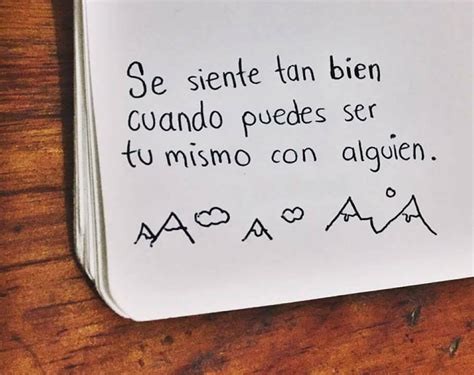 Se siente tan bien
cuando puedes ser
tu mismo con alguien.